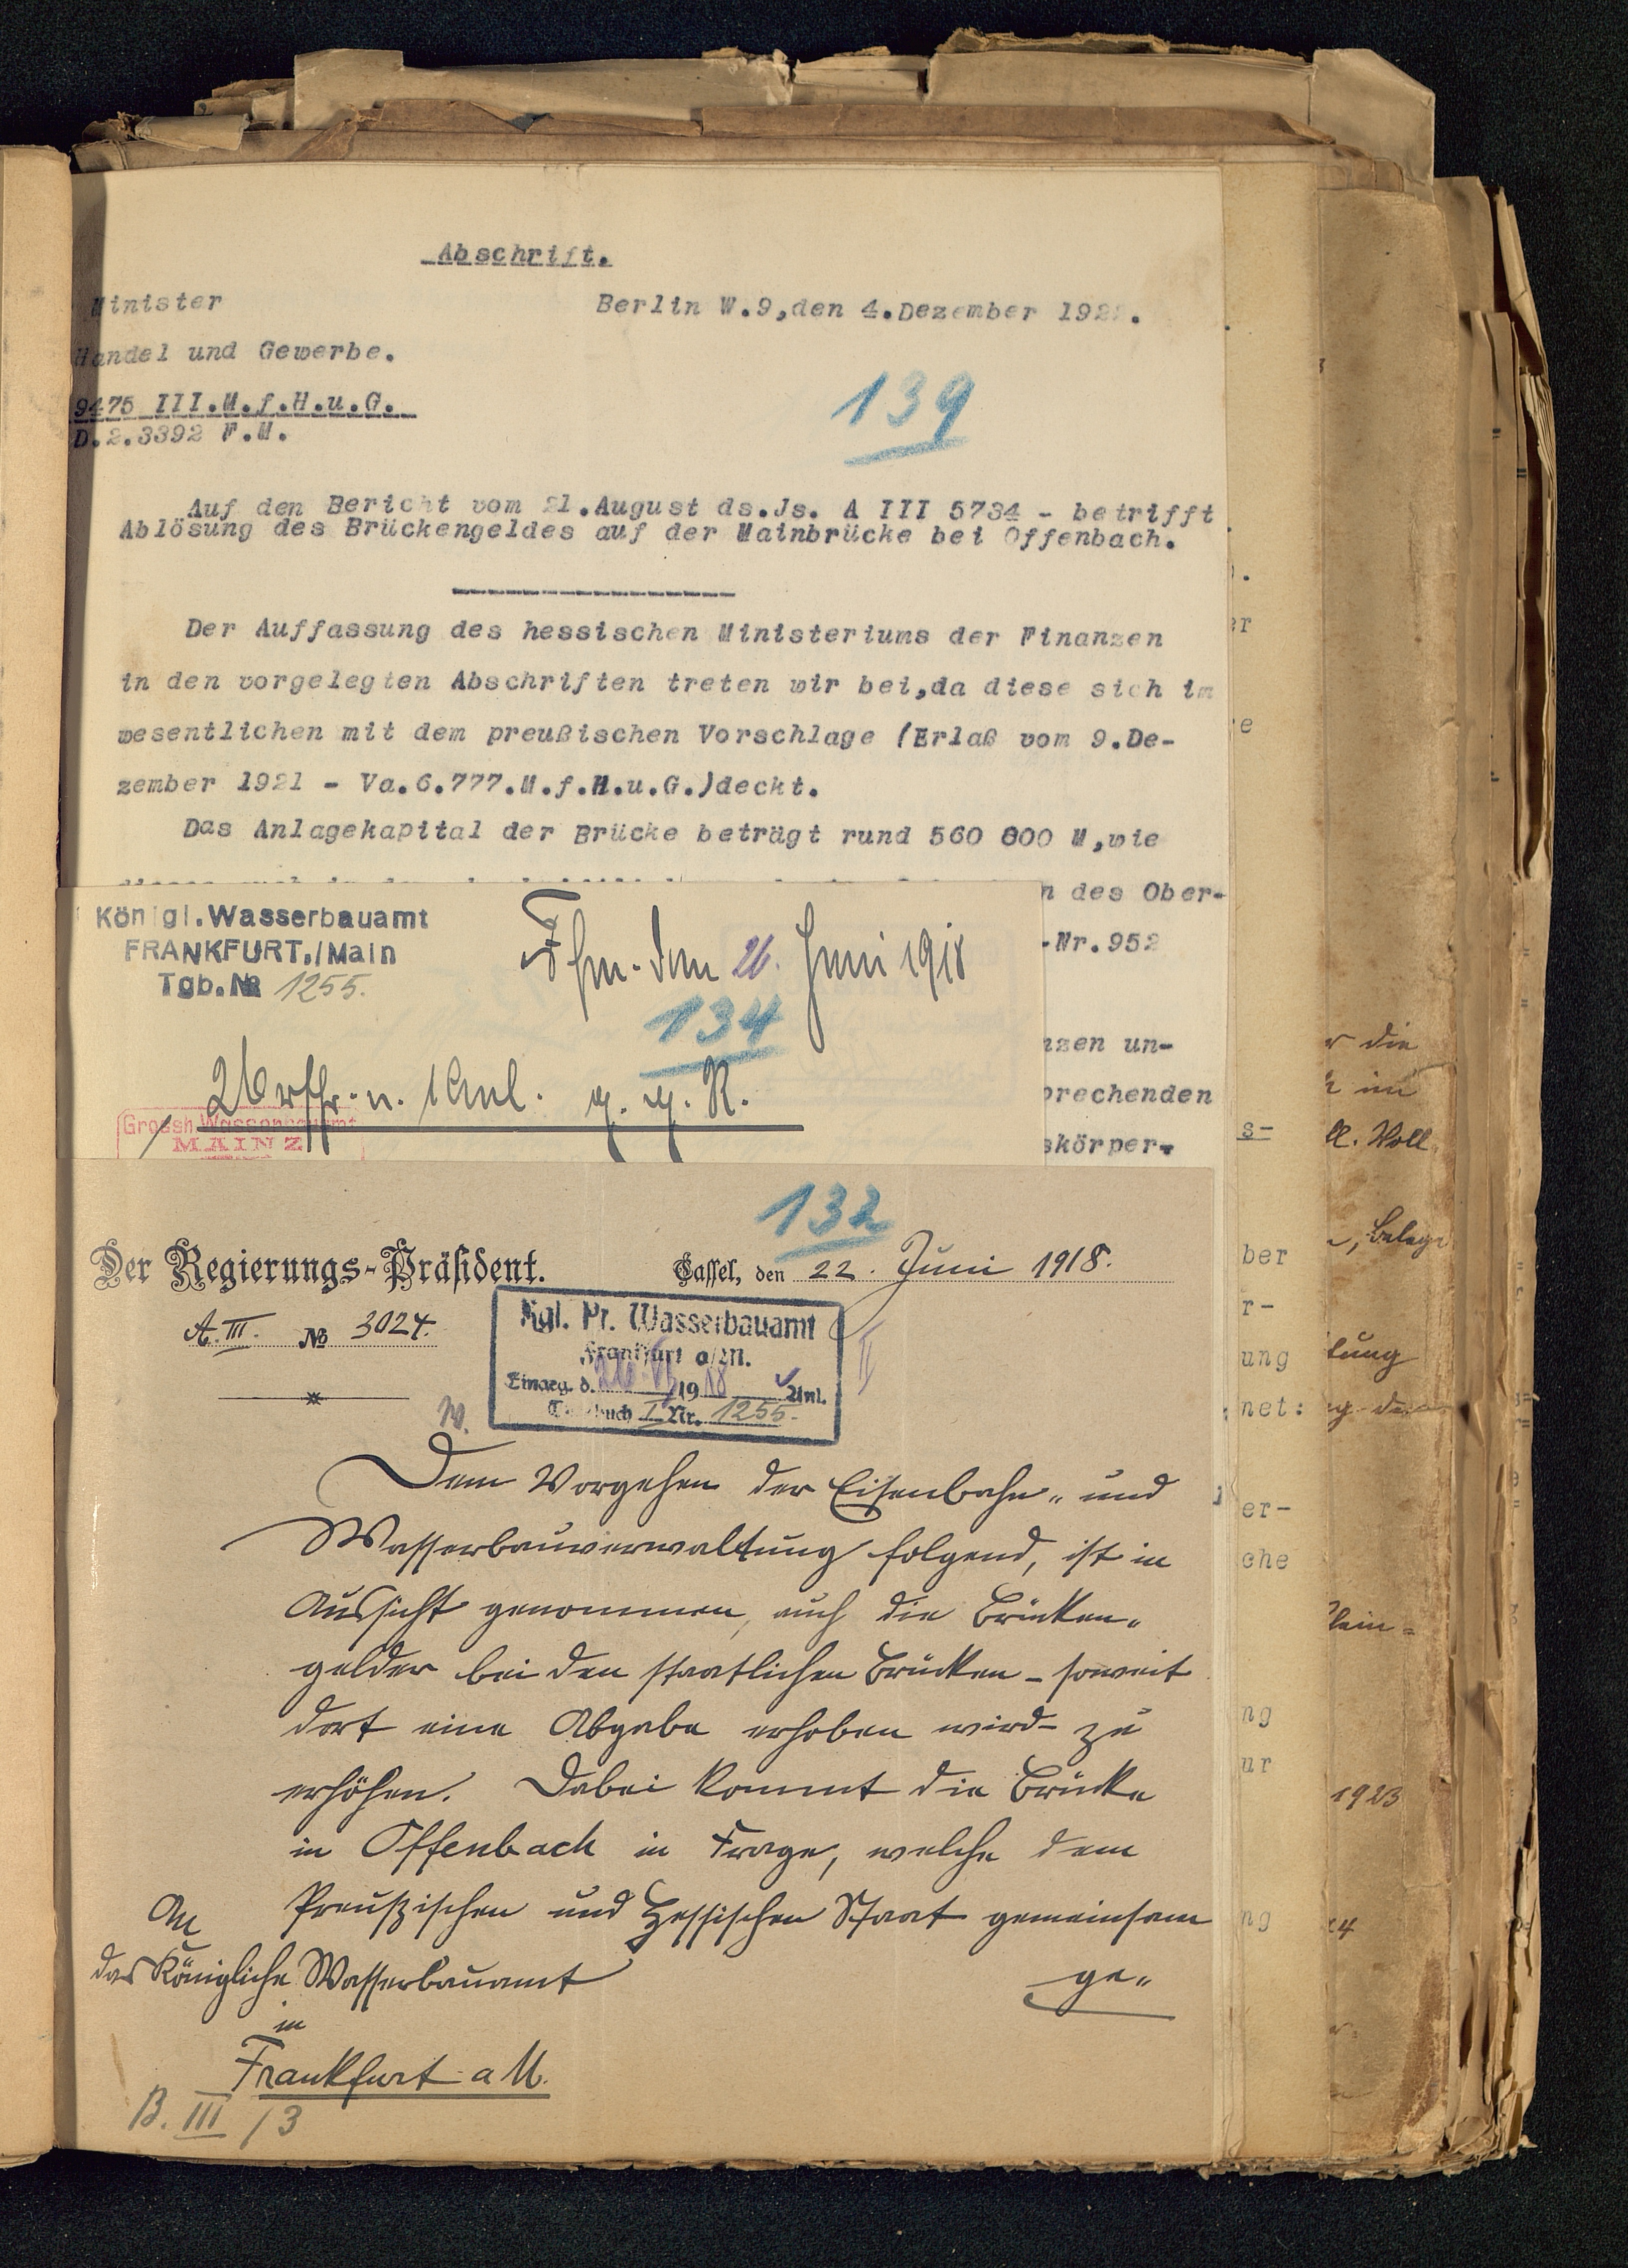 Abschrift.
Minister
Berlin W.9,den 4.Dezember 192
Handel und Gewerbe.
9475 III.M.f.H.u.G.
D.2.3392 F.M.
139
Auf den Bericht vom 21.August ds.Js. A III 5734 - betrifft
Ablösung des Brückengeldes auf der Mainbrücke bei Offenbach.
Der Auffassung des hessischen Ministeriums der Finanzen
in den vorgelegten Abschriften treten wir bei,da diese sich im
wesentlichen mit dem preußischen Vorschlage (Erlaß vom 9.De-
zember 1921 - Va.6.777.M.f.H.u.G.)deckt.
Das Anlagekapital der Brücke beträgt rund 560 000 M,wie
n des Ober-
-Nr.952
nzen un-
prechenden
skörper-
Königl.Wasserbauamt
FRANKFURT./Main
Tgb.№ 1255.
Ffm. den 26. Juni 1918
134
Urschr. n. 1 Anl. g. g. R.
Grossh.Wasserbauamt
MAINZ
132
Der Regierungs-Präsident.
Cassel, den 22. Juni 1918.
A. III. № 3024.
Kgl. Pr. Wasserbauamt
Frankfurt a/M.
Eingeg. d. 26. VI. 1918 Anl.
Tagebuch I Nr. 1255.
Dem Vorgehen der Eisenbahn- und
Wasserbauverwaltung folgend, ist in
Aussicht genommen, auch die Brücken-
gelder bei den staatlichen Brücken - soweit
dort eine Abgabe erhoben wird - zu
erhöhen. Dabei kommt die Brücke
in Offenbach in Frage, welche dem
Preußischen und Hessischen Staat gemeinsam
ge-
An
das Königliche Wasserbauamt
in
Frankfurt a M.
B. III /3
er
e
s-
ber
r-
ung
net:
er-
che
ng
ur
ng
r die
im
ll. Voll
, Belege
tung
1923